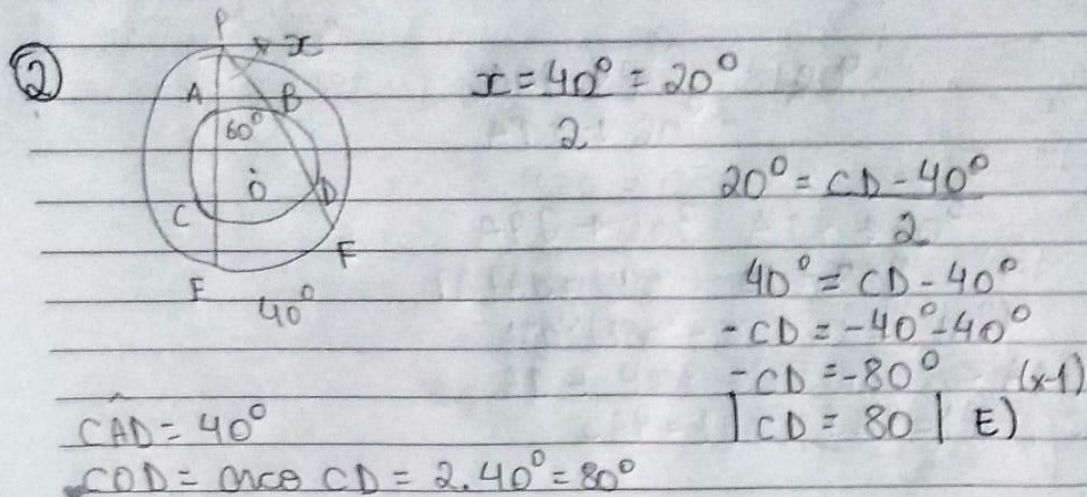 ②
P
x
A B
60°
O
C D
F F
40°
x = 40° = 20°
2
20° = CD - 40°
2
40° = CD - 40°
-CD = -40° - 40°
-CD = -80° (x-1)
| CD = 80 | E)
CÂD = 40°
COD = arco CD = 2.40° = 80°